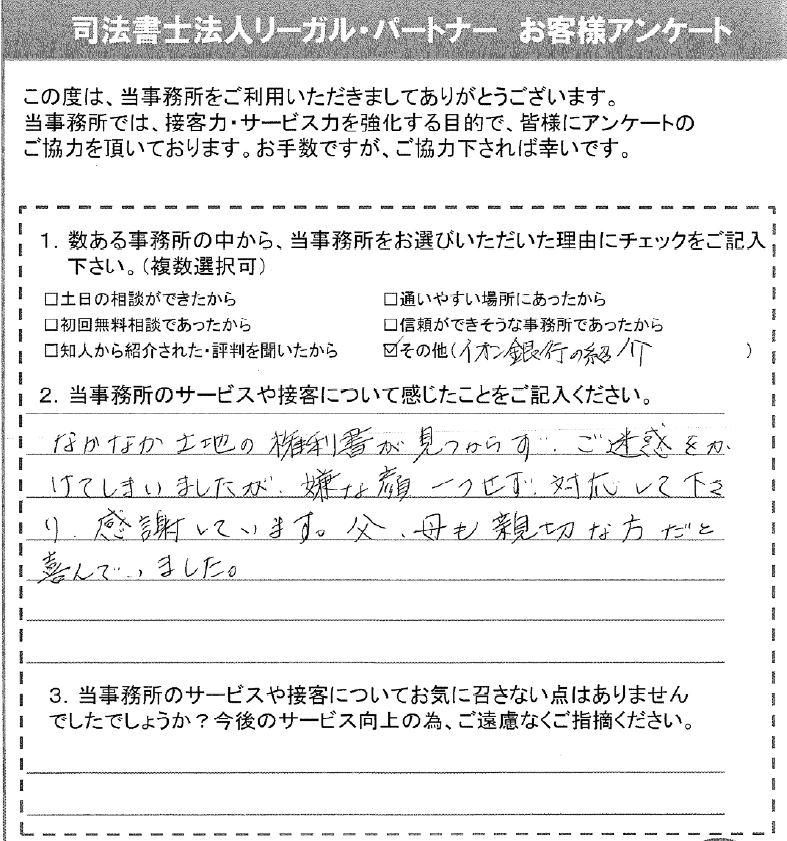 司法書士法人リーガル・パートナー お客様アンケート
この度は、当事務所をご利用いただきましてありがとうございます。
当事務所では、接客力・サービス力を強化する目的で、皆様にアンケートの
ご協力を頂いております。お手数ですが、ご協力下されば幸いです。
1. 数ある事務所の中から、当事務所をお選びいただいた理由にチェックをご記入
下さい。(複数選択可)
□土日の相談ができたから □通いやすい場所にあったから
□初回無料相談であったから □信頼ができそうな事務所であったから
□知人から紹介された・評判を聞いたから ☑その他(イオン銀行の紹介 )
2. 当事務所のサービスや接客について感じたことをご記入ください。
なかなか土地の権利書が見つからず、ご迷惑をか
けてしまいましたが、嫌な顔一つせず、対応して下さ
り、感謝しています。父、母も親切な方だと
喜んでいました。
3. 当事務所のサービスや接客についてお気に召さない点はありません
でしたでしょうか?今後のサービス向上の為、ご遠慮なくご指摘ください。